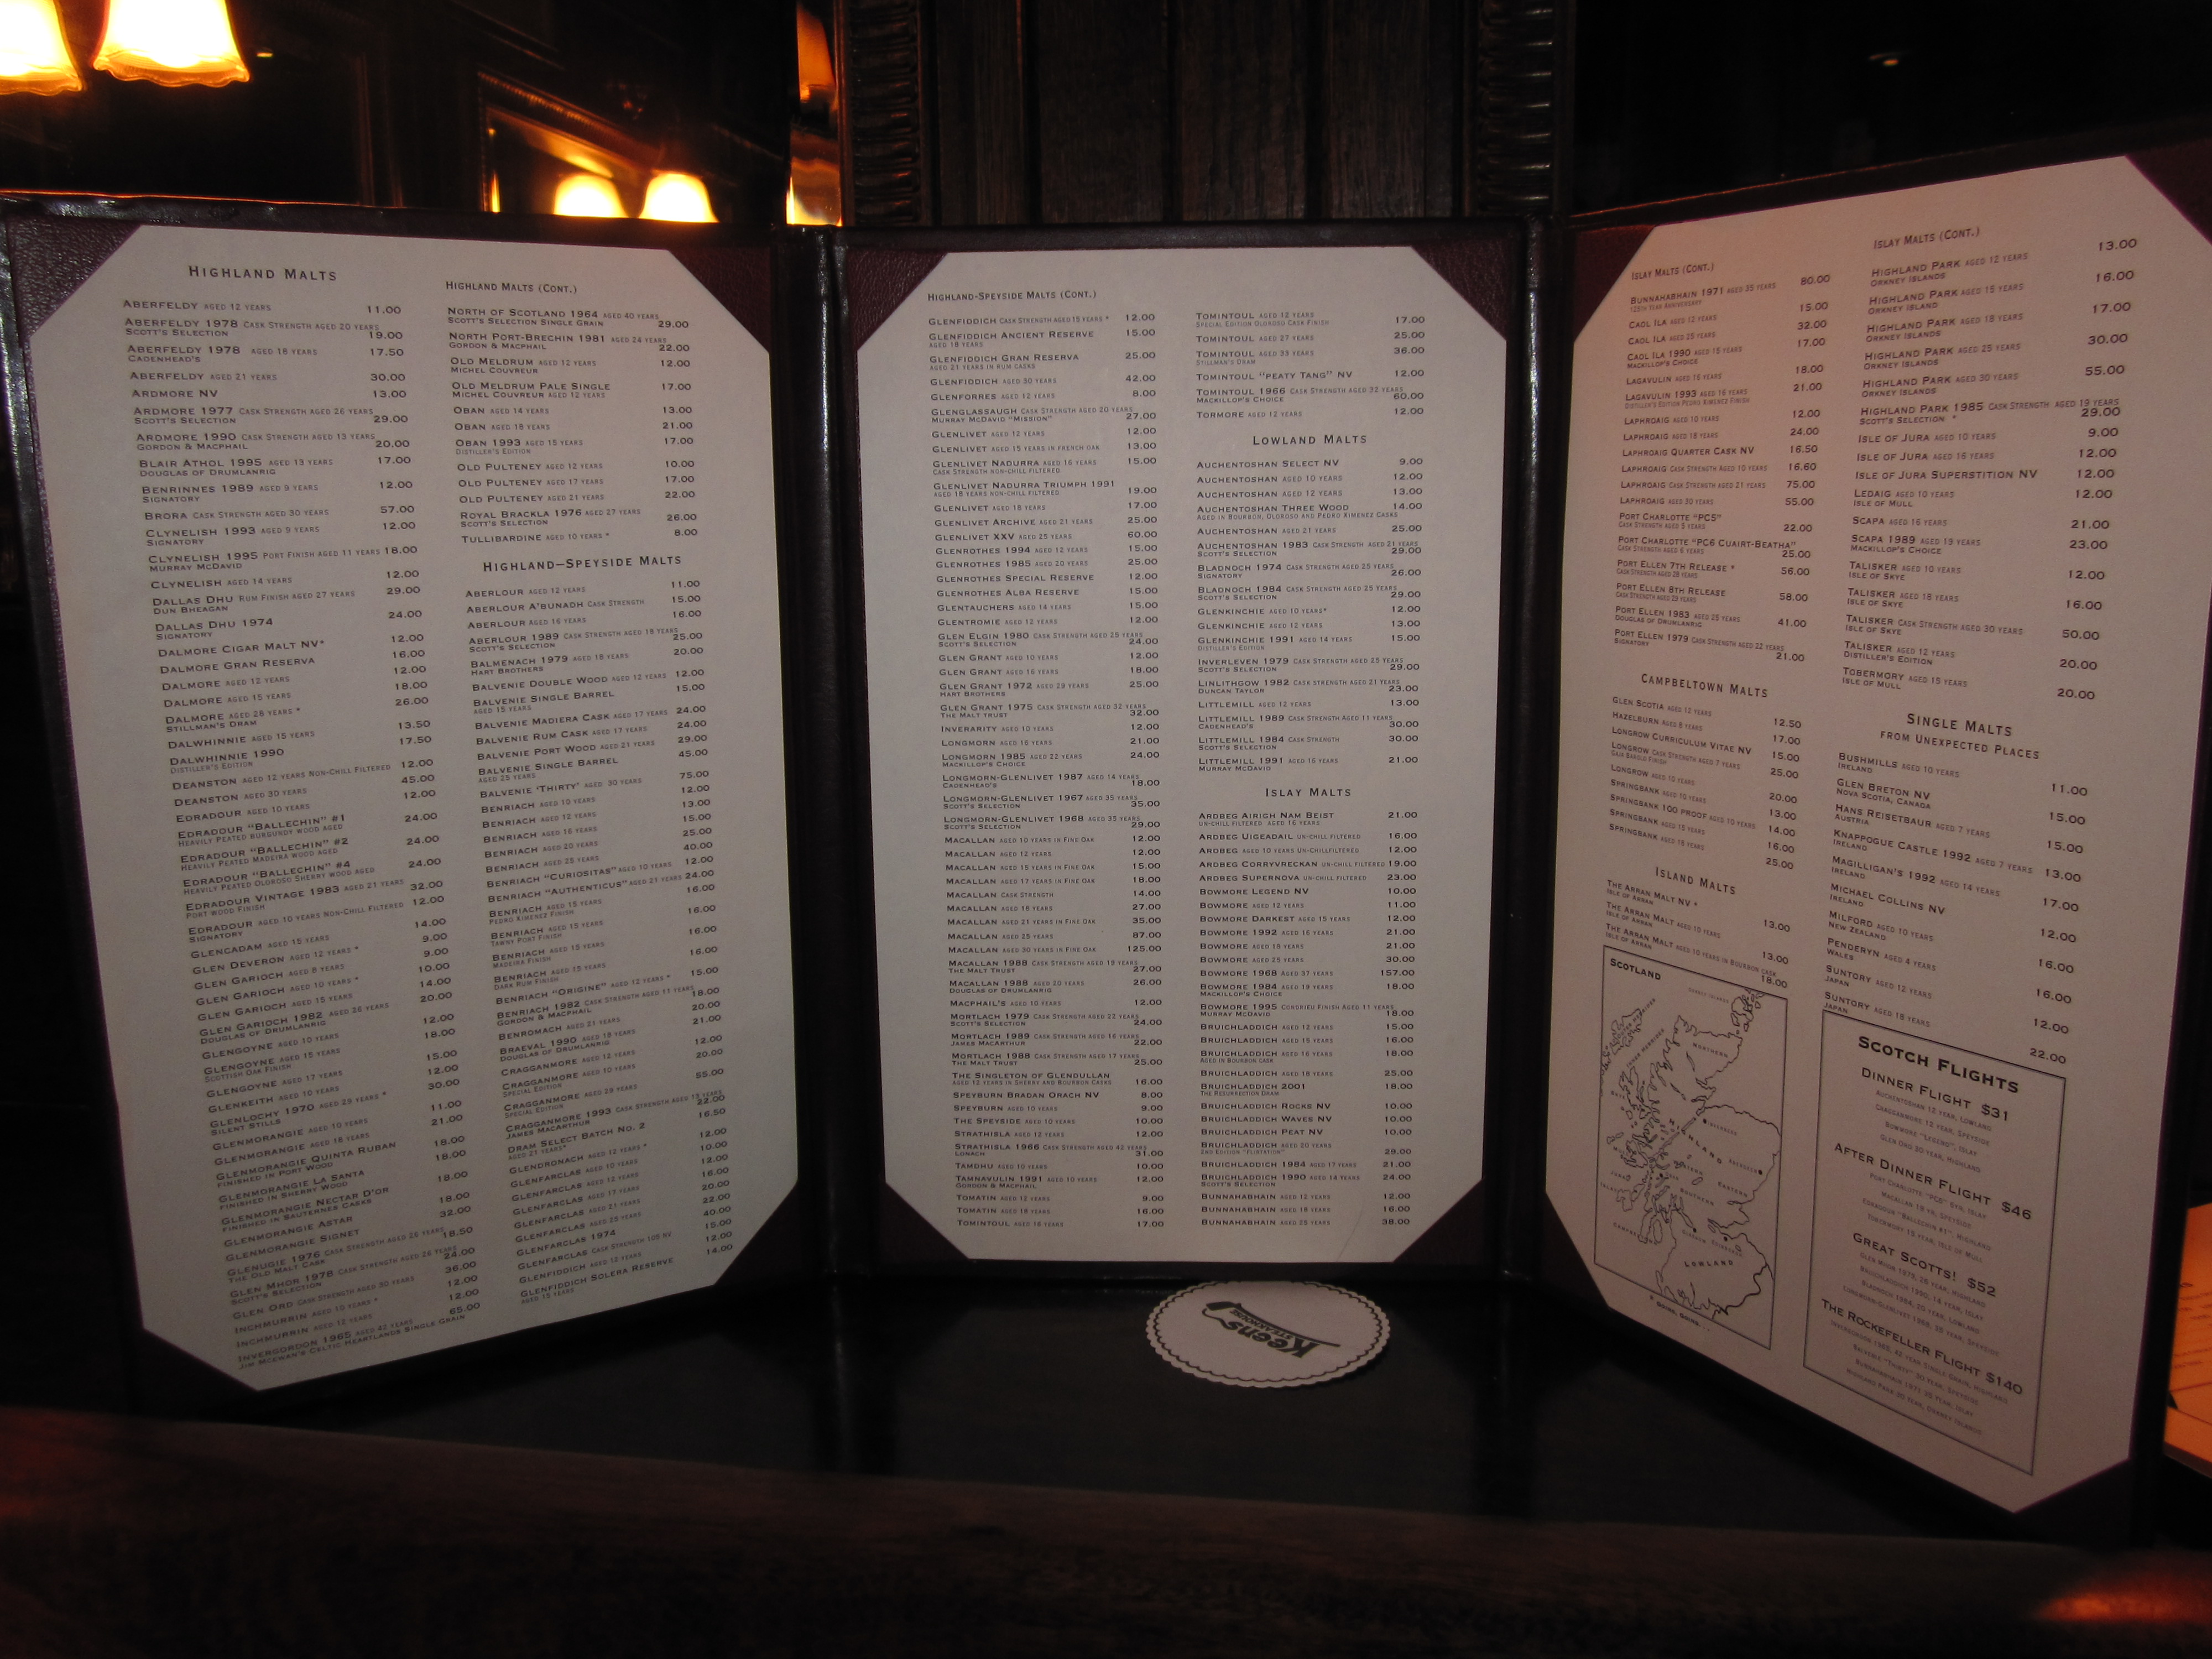 HIGHLAND MALTS
ABERFELDY AGED 12 YEARS 11.00
ABERFELDY 1978 CASK STRENGTH AGED 20 YEARS
SCOTT'S SELECTION 19.00
ABERFELDY 1978 AGED 18 YEARS 17.50
CADENHEAD'S
ABERFELDY AGED 21 YEARS 30.00
ARDMORE NV 13.00
ARDMORE 1977 CASK STRENGTH AGED 26 YEARS
SCOTT'S SELECTION 29.00
ARDMORE 1990 CASK STRENGTH AGED 13 YEARS
GORDON & MACPHAIL 20.00
BLAIR ATHOL 1995 AGED 13 YEARS 17.00
DOUGLAS OF DRUMLANRIG
BENRINNES 1989 AGED 9 YEARS 12.00
SIGNATORY
BRORA CASK STRENGTH AGED 30 YEARS 57.00
CLYNELISH 1993 AGED 9 YEARS 12.00
SIGNATORY
CLYNELISH 1995 PORT FINISH AGED 11 YEARS 18.00
MURRAY MCDAVID
CLYNELISH AGED 14 YEARS 12.00
DALLAS DHU RUM FINISH AGED 27 YEARS 29.00
DUN BHEAGAN
DALLAS DHU 1974 24.00
SIGNATORY
DALMORE CIGAR MALT NV* 12.00
DALMORE GRAN RESERVA 16.00
DALMORE AGED 12 YEARS 12.00
DALMORE AGED 15 YEARS 18.00
DALMORE AGED 28 YEARS * 26.00
STILLMAN'S DRAM
DALWHINNIE AGED 15 YEARS 13.50
DALWHINNIE 1990 17.50
DISTILLER'S EDITION
DEANSTON AGED 12 YEARS NON-CHILL FILTERED 12.00
DEANSTON AGED 30 YEARS 45.00
EDRADOUR AGED 10 YEARS 12.00
EDRADOUR "BALLECHIN" #1 24.00
HEAVILY PEATED BURGUNDY WOOD AGED
EDRADOUR "BALLECHIN" #2 24.00
HEAVILY PEATED MADEIRA WOOD AGED
EDRADOUR "BALLECHIN" #4 24.00
HEAVILY PEATED OLOROSO SHERRY WOOD AGED
EDRADOUR VINTAGE 1983 AGED 21 YEARS 32.00
PORT WOOD FINISH
EDRADOUR AGED 10 YEARS NON-CHILL FILTERED 12.00
SIGNATORY
GLENCADAM AGED 15 YEARS 14.00
GLEN DEVERON AGED 12 YEARS * 9.00
GLEN GARIOCH AGED 8 YEARS 9.00
GLEN GARIOCH AGED 10 YEARS * 10.00
GLEN GARIOCH AGED 15 YEARS 14.00
GLEN GARIOCH 1982 AGED 26 YEARS 20.00
DOUGLAS OF DRUMLANRIG
GLENGOYNE AGED 10 YEARS 12.00
GLENGOYNE AGED 15 YEARS 18.00
SCOTTISH OAK FINISH
GLENGOYNE AGED 17 YEARS 15.00
GLENKEITH AGED 10 YEARS 12.00
GLENLOCHY 1970 AGED 29 YEARS * 30.00
SILENT STILLS
GLENMORANGIE AGED 10 YEARS 11.00
GLENMORANGIE AGED 18 YEARS 21.00
GLENMORANGIE QUINTA RUBAN 18.00
FINISHED IN PORT WOOD
GLENMORANGIE LA SANTA 18.00
FINISHED IN SHERRY WOOD
GLENMORANGIE NECTAR D'OR 18.00
FINISHED IN SAUTERNES CASKS
GLENMORANGIE ASTAR 18.00
GLENMORANGIE SIGNET 32.00
GLENUGIE 1976 CASK STRENGTH AGED 26 YEARS 18.50
THE OLD MALT CASK
GLEN MHOR 1978 CASK STRENGTH AGED 26 YEARS
SCOTT'S SELECTION 24.00
GLEN ORD CASK STRENGTH AGED 30 YEARS 36.00
INCHMURRIN AGED 10 YEARS * 12.00
INCHMURRIN AGED 12 YEARS 12.00
INVERGORDON 1965 AGED 42 YEARS 65.00
JIM MCEWAN'S CELTIC HEARTLANDS SINGLE GRAIN
HIGHLAND MALTS (CONT.)
NORTH OF SCOTLAND 1964 AGED 40 YEARS
SCOTT'S SELECTION SINGLE GRAIN 29.00
NORTH PORT-BRECHIN 1981 AGED 24 YEARS
GORDON & MACPHAIL 22.00
OLD MELDRUM AGED 12 YEARS 12.00
MICHEL COUVREUR
OLD MELDRUM PALE SINGLE 17.00
MICHEL COUVREUR AGED 12 YEARS
OBAN AGED 14 YEARS 13.00
OBAN AGED 18 YEARS 21.00
OBAN 1993 AGED 15 YEARS 17.00
DISTILLER'S EDITION
OLD PULTENEY AGED 12 YEARS 10.00
OLD PULTENEY AGED 17 YEARS 17.00
OLD PULTENEY AGED 21 YEARS 22.00
ROYAL BRACKLA 1976 AGED 27 YEARS 26.00
SCOTT'S SELECTION
TULLIBARDINE AGED 10 YEARS * 8.00
HIGHLAND–SPEYSIDE MALTS
ABERLOUR AGED 12 YEARS 11.00
ABERLOUR A'BUNADH CASK STRENGTH 15.00
ABERLOUR AGED 16 YEARS 16.00
ABERLOUR 1989 CASK STRENGTH AGED 18 YEARS
SCOTT'S SELECTION 25.00
BALMENACH 1979 AGED 18 YEARS 20.00
HART BROTHERS
BALVENIE DOUBLE WOOD AGED 12 YEARS 12.00
BALVENIE SINGLE BARREL 15.00
AGED 15 YEARS
BALVENIE MADIERA CASK AGED 17 YEARS 24.00
BALVENIE RUM CASK AGED 17 YEARS 24.00
BALVENIE PORT WOOD AGED 21 YEARS 29.00
BALVENIE SINGLE BARREL 45.00
AGED 25 YEARS
BALVENIE 'THIRTY' AGED 30 YEARS 75.00
BENRIACH AGED 10 YEARS 12.00
BENRIACH AGED 12 YEARS 13.00
BENRIACH AGED 16 YEARS 15.00
BENRIACH AGED 20 YEARS 25.00
BENRIACH AGED 25 YEARS 40.00
BENRIACH "CURIOSITAS" AGED 10 YEARS 12.00
BENRIACH "AUTHENTICUS" AGED 21 YEARS 24.00
BENRIACH AGED 15 YEARS 16.00
PEDRO XIMENEZ FINISH
BENRIACH AGED 15 YEARS 16.00
TAWNY PORT FINISH
BENRIACH AGED 15 YEARS 16.00
MADEIRA FINISH
BENRIACH AGED 15 YEARS 16.00
DARK RUM FINISH
BENRIACH "ORIGINE" AGED 12 YEARS * 15.00
BENRIACH 1982 CASK STRENGTH AGED 11 YEARS
GORDON & MACPHAIL 18.00
BENROMACH AGED 21 YEARS 20.00
BRAEVAL 1990 AGED 18 YEARS 21.00
DOUGLAS OF DRUMLANRIG
CRAGGANMORE AGED 12 YEARS 12.00
CRAGGANMORE AGED 10 YEARS 20.00
SPECIAL EDITION
CRAGGANMORE AGED 29 YEARS 55.00
SPECIAL EDITION
CRAGGANMORE 1993 CASK STRENGTH AGED 15 YEARS
JAMES MACARTHUR 22.00
DRAM SELECT BATCH NO. 2 16.50
AGED 21 YEARS*
GLENDRONACH AGED 12 YEARS * 12.00
GLENFARCLAS AGED 10 YEARS 10.00
GLENFARCLAS AGED 12 YEARS 12.00
GLENFARCLAS AGED 17 YEARS 16.00
GLENFARCLAS AGED 21 YEARS 20.00
GLENFARCLAS AGED 25 YEARS 22.00
GLENFARCLAS 1974 40.00
GLENFARCLAS CASK STRENGTH 105 NV 15.00
GLENFIDDICH AGED 12 YEARS 12.00
GLENFIDDICH SOLERA RESERVE 14.00
AGED 15 YEARS
HIGHLAND-SPEYSIDE MALTS (CONT.)
GLENFIDDICH CASK STRENGTH AGED 15 YEARS * 12.00
GLENFIDDICH ANCIENT RESERVE 15.00
AGED 18 YEARS
GLENFIDDICH GRAN RESERVA 25.00
AGED 21 YEARS IN RUM CASKS
GLENFIDDICH AGED 30 YEARS 42.00
GLENFORRES AGED 12 YEARS 8.00
GLENGLASSAUGH CASK STRENGTH AGED 20 YEARS
MURRAY MCDAVID "MISSION" 27.00
GLENLIVET AGED 12 YEARS 12.00
GLENLIVET AGED 15 YEARS IN FRENCH OAK 13.00
GLENLIVET NADURRA AGED 16 YEARS 15.00
CASK STRENGTH NON-CHILL FILTERED
GLENLIVET NADURRA TRIUMPH 1991
AGED 18 YEARS NON-CHILL FILTERED 19.00
GLENLIVET AGED 18 YEARS 17.00
GLENLIVET ARCHIVE AGED 21 YEARS 25.00
GLENLIVET XXV AGED 25 YEARS 60.00
GLENROTHES 1994 AGED 12 YEARS 15.00
GLENROTHES 1985 AGED 20 YEARS 25.00
GLENROTHES SPECIAL RESERVE 12.00
GLENROTHES ALBA RESERVE 15.00
GLENTAUCHERS AGED 14 YEARS 15.00
GLENTROMIE AGED 12 YEARS 12.00
GLEN ELGIN 1980 CASK STRENGTH AGED 25 YEARS
SCOTT'S SELECTION 24.00
GLEN GRANT AGED 10 YEARS 12.00
GLEN GRANT AGED 16 YEARS 18.00
GLEN GRANT 1972 AGED 29 YEARS 25.00
HART BROTHERS
GLEN GRANT 1975 CASK STRENGTH AGED 32 YEARS
THE MALT TRUST 32.00
INVERARITY AGED 10 YEARS 12.00
LONGMORN AGED 16 YEARS 21.00
LONGMORN 1985 AGED 22 YEARS 24.00
MACKILLOP'S CHOICE
LONGMORN-GLENLIVET 1987 AGED 14 YEARS
CADENHEAD'S 18.00
LONGMORN-GLENLIVET 1967 AGED 35 YEARS
SCOTT'S SELECTION 35.00
LONGMORN-GLENLIVET 1968 AGED 35 YEARS
SCOTT'S SELECTION 29.00
MACALLAN AGED 10 YEARS IN FINE OAK 12.00
MACALLAN AGED 12 YEARS 12.00
MACALLAN AGED 15 YEARS IN FINE OAK 15.00
MACALLAN AGED 17 YEARS IN FINE OAK 18.00
MACALLAN CASK STRENGTH 14.00
MACALLAN AGED 18 YEARS 27.00
MACALLAN AGED 21 YEARS IN FINE OAK 35.00
MACALLAN AGED 25 YEARS 87.00
MACALLAN AGED 30 YEARS IN FINE OAK 125.00
MACALLAN 1988 CASK STRENGTH AGED 19 YEARS
THE MALT TRUST 27.00
MACALLAN 1988 AGED 20 YEARS 26.00
DOUGLAS OF DRUMLANRIG
MACPHAIL'S AGED 10 YEARS 12.00
MORTLACH 1979 CASK STRENGTH AGED 22 YEARS
SCOTT'S SELECTION 24.00
MORTLACH 1989 CASK STRENGTH AGED 16 YEARS
JAMES MACARTHUR 22.00
MORTLACH 1988 CASK STRENGTH AGED 17 YEARS
THE MALT TRUST 25.00
THE SINGLETON OF GLENDULLAN
AGED 12 YEARS IN SHERRY AND BOURBON CASKS 16.00
SPEYBURN BRADAN ORACH NV 8.00
SPEYBURN AGED 10 YEARS 9.00
THE SPEYSIDE AGED 10 YEARS 10.00
STRATHISLA AGED 12 YEARS 12.00
STRATHISLA 1966 CASK STRENGTH AGED 42 YEARS
LONACH 31.00
TAMDHU AGED 10 YEARS 10.00
TAMNAVULIN 1991 AGED 10 YEARS 12.00
GORDON & MACPHAIL
TOMATIN AGED 12 YEARS 9.00
TOMATIN AGED 18 YEARS 16.00
TOMINTOUL AGED 16 YEARS 17.00
TOMINTOUL AGED 12 YEARS 17.00
SPECIAL EDITION OLOROSO CASK FINISH
TOMINTOUL AGED 27 YEARS 25.00
TOMINTOUL AGED 33 YEARS 36.00
STILLMAN'S DRAM
TOMINTOUL "PEATY TANG" NV 12.00
TOMINTOUL 1966 CASK STRENGTH AGED 32 YEARS
MACKILLOP'S CHOICE 60.00
TORMORE AGED 12 YEARS 12.00
LOWLAND MALTS
AUCHENTOSHAN SELECT NV 9.00
AUCHENTOSHAN AGED 10 YEARS 12.00
AUCHENTOSHAN AGED 12 YEARS 13.00
AUCHENTOSHAN THREE WOOD 14.00
AGED IN BOURBON, OLOROSO AND PEDRO XIMENEZ CASKS
AUCHENTOSHAN AGED 21 YEARS 25.00
AUCHENTOSHAN 1983 CASK STRENGTH AGED 21 YEARS
SCOTT'S SELECTION 29.00
BLADNOCH 1974 CASK STRENGTH AGED 25 YEARS
SIGNATORY 26.00
BLADNOCH 1984 CASK STRENGTH AGED 25 YEARS
SCOTT'S SELECTION 29.00
GLENKINCHIE AGED 10 YEARS* 12.00
GLENKINCHIE AGED 12 YEARS 13.00
GLENKINCHIE 1991 AGED 14 YEARS 15.00
DISTILLER'S EDITION
INVERLEVEN 1979 CASK STRENGTH AGED 25 YEARS
SCOTT'S SELECTION 29.00
LINLITHGOW 1982 CASK STRENGTH AGED 21 YEARS
DUNCAN TAYLOR 23.00
LITTLEMILL AGED 12 YEARS 13.00
LITTLEMILL 1989 CASK STRENGTH AGED 11 YEARS
CADENHEAD'S 30.00
LITTLEMILL 1984 CASK STRENGTH 30.00
SCOTT'S SELECTION
LITTLEMILL 1991 AGED 16 YEARS 21.00
MURRAY MCDAVID
ISLAY MALTS
ARDBEG AIRIGH NAM BEIST 21.00
UN-CHILL FILTERED AGED 16 YEARS
ARDBEG UIGEADAIL UN-CHILL FILTERED 16.00
ARDBEG AGED 10 YEARS UN-CHILLFILTERED 12.00
ARDBEG CORRYVRECKAN UN-CHILL FILTERED 19.00
ARDBEG SUPERNOVA UN-CHILL FILTERED 23.00
BOWMORE LEGEND NV 10.00
BOWMORE AGED 12 YEARS 11.00
BOWMORE DARKEST AGED 15 YEARS 12.00
BOWMORE 1992 AGED 16 YEARS 21.00
BOWMORE AGED 18 YEARS 21.00
BOWMORE AGED 25 YEARS 30.00
BOWMORE 1968 AGED 37 YEARS 157.00
BOWMORE 1984 AGED 19 YEARS 18.00
MACKILLOP'S CHOICE
BOWMORE 1995 CONDRIEU FINISH AGED 11 YEARS
MURRAY MCDAVID 18.00
BRUICHLADDICH AGED 12 YEARS 15.00
BRUICHLADDICH AGED 15 YEARS 16.00
BRUICHLADDICH AGED 16 YEARS 18.00
AGED IN BOURBON CASK
BRUICHLADDICH AGED 18 YEARS 25.00
BRUICHLADDICH 2001 18.00
THE RESURRECTION DRAM
BRUICHLADDICH ROCKS NV 10.00
BRUICHLADDICH WAVES NV 10.00
BRUICHLADDICH PEAT NV 10.00
BRUICHLADDICH AGED 20 YEARS
2ND EDITION "FLIRTATION" 29.00
BRUICHLADDICH 1984 AGED 17 YEARS 21.00
BRUICHLADDICH 1990 AGED 14 YEARS 24.00
SCOTT'S SELECTION
BUNNAHABHAIN AGED 12 YEARS 12.00
BUNNAHABHAIN AGED 18 YEARS 16.00
BUNNAHABHAIN AGED 25 YEARS 38.00
ISLAY MALTS (CONT.)
BUNNAHABHAIN 1971 AGED 35 YEARS 80.00
125TH YEAR ANNIVERSARY
CAOL ILA AGED 12 YEARS 15.00
CAOL ILA AGED 25 YEARS 32.00
CAOL ILA 1990 AGED 15 YEARS 17.00
MACKILLOP'S CHOICE
LAGAVULIN AGED 16 YEARS 18.00
LAGAVULIN 1993 AGED 16 YEARS 21.00
DISTILLER'S EDITION PEDRO XIMENEZ FINISH
LAPHROAIG AGED 10 YEARS 12.00
LAPHROAIG AGED 18 YEARS 24.00
LAPHROAIG QUARTER CASK NV 16.50
LAPHROAIG CASK STRENGTH AGED 10 YEARS 16.60
LAPHROAIG CASK STRENGTH AGED 21 YEARS 75.00
LAPHROAIG AGED 30 YEARS 55.00
PORT CHARLOTTE "PC5"
CASK STRENGTH AGED 5 YEARS 22.00
PORT CHARLOTTE "PC6 CUAIRT-BEATHA"
CASK STRENGTH AGED 6 YEARS 25.00
PORT ELLEN 7TH RELEASE * 56.00
CASK STRENGTH AGED 28 YEARS
PORT ELLEN 8TH RELEASE 58.00
CASK STRENGTH AGED 29 YEARS
PORT ELLEN 1983 AGED 25 YEARS 41.00
DOUGLAS OF DRUMLANRIG
PORT ELLEN 1979 CASK STRENGTH AGED 22 YEARS
SIGNATORY 21.00
CAMPBELTOWN MALTS
GLEN SCOTIA AGED 12 YEARS 12.50
HAZELBURN AGED 8 YEARS 17.00
LONGROW CURRICULUM VITAE NV 15.00
LONGROW CASK STRENGTH AGED 7 YEARS 25.00
GAJA BAROLO FINISH
LONGROW AGED 10 YEARS 20.00
SPRINGBANK AGED 10 YEARS 13.00
SPRINGBANK 100 PROOF AGED 10 YEARS 14.00
SPRINGBANK AGED 15 YEARS 16.00
SPRINGBANK AGED 18 YEARS 25.00
ISLAND MALTS
THE ARRAN MALT NV * 13.00
ISLE OF ARRAN
THE ARRAN MALT AGED 10 YEARS 13.00
ISLE OF ARRAN
THE ARRAN MALT AGED 10 YEARS IN BOURBON CASK
ISLE OF ARRAN 18.00
SCOTLAND
ORKNEY ISLANDS
NORTHERN
HIGHLAND
EASTERN
WESTERN
SOUTHERN
LOWLAND
ISLAY MALTS (CONT.)
HIGHLAND PARK AGED 12 YEARS 13.00
ORKNEY ISLANDS
HIGHLAND PARK AGED 15 YEARS 16.00
ORKNEY ISLAND
HIGHLAND PARK AGED 18 YEARS 17.00
ORKNEY ISLANDS
HIGHLAND PARK AGED 25 YEARS 30.00
ORKNEY ISLANDS
HIGHLAND PARK AGED 30 YEARS 55.00
ORKNEY ISLANDS
HIGHLAND PARK 1985 CASK STRENGTH AGED 19 YEARS
SCOTT'S SELECTION * 29.00
ISLE OF JURA AGED 10 YEARS 9.00
ISLE OF JURA AGED 16 YEARS 12.00
ISLE OF JURA SUPERSTITION NV 12.00
LEDAIG AGED 10 YEARS 12.00
ISLE OF MULL
SCAPA AGED 16 YEARS 21.00
SCAPA 1989 AGED 19 YEARS 23.00
MACKILLOP'S CHOICE
TALISKER AGED 10 YEARS 12.00
ISLE OF SKYE
TALISKER AGED 18 YEARS 16.00
ISLE OF SKYE
TALISKER CASK STRENGTH AGED 30 YEARS 50.00
ISLE OF SKYE
TALISKER AGED 12 YEARS 20.00
DISTILLER'S EDITION
TOBERMORY AGED 15 YEARS 20.00
ISLE OF MULL
SINGLE MALTS
FROM UNEXPECTED PLACES
BUSHMILLS AGED 10 YEARS 11.00
IRELAND
GLEN BRETON NV 15.00
NOVA SCOTIA, CANADA
HANS REISETBAUR AGED 7 YEARS 15.00
AUSTRIA
KNAPPOGUE CASTLE 1992 AGED 7 YEARS 13.00
IRELAND
MAGILLIGAN'S 1992 AGED 14 YEARS 17.00
IRELAND
MICHAEL COLLINS NV 12.00
IRELAND
MILFORD AGED 10 YEARS 16.00
NEW ZEALAND
PENDERYN AGED 4 YEARS 16.00
WALES
SUNTORY AGED 12 YEARS 12.00
JAPAN
SUNTORY AGED 18 YEARS 22.00
JAPAN
SCOTCH FLIGHTS
DINNER FLIGHT $31
AUCHENTOSHAN 12 YEAR, LOWLAND
CRAGGANMORE 12 YEAR, SPEYSIDE
BOWMORE "LEGEND", ISLAY
GLEN ORD 30 YEAR, HIGHLAND
AFTER DINNER FLIGHT $46
PORT CHARLOTTE "PC5" 5YR, ISLAY
MACALLAN 18 YR, SPEYSIDE
EDRADOUR "BALLECHIN #1", HIGHLAND
TOBERMORY 15 YEAR, ISLE OF MULL
GREAT SCOTTS! $52
GLEN MHOR 1978, 26 YEAR, HIGHLAND
BRUICHLADDICH 1990, 14 YEAR, ISLAY
BLADNOCH 1984, 25 YEAR, LOWLAND
LONGMORN-GLENLIVET 1968, 35 YEAR, SPEYSIDE
THE ROCKEFELLER FLIGHT $140
INVERGORDON 1965, 42 YEAR SINGLE GRAIN, HIGHLAND
BALVENIE "THIRTY" 30 YEAR, SPEYSIDE
BUNNAHABHAIN 1971 35 YEAR, ISLAY
HIGHLAND PARK 30 YEAR, ORKNEY ISLANDS
Keens
STEAKHOUSE